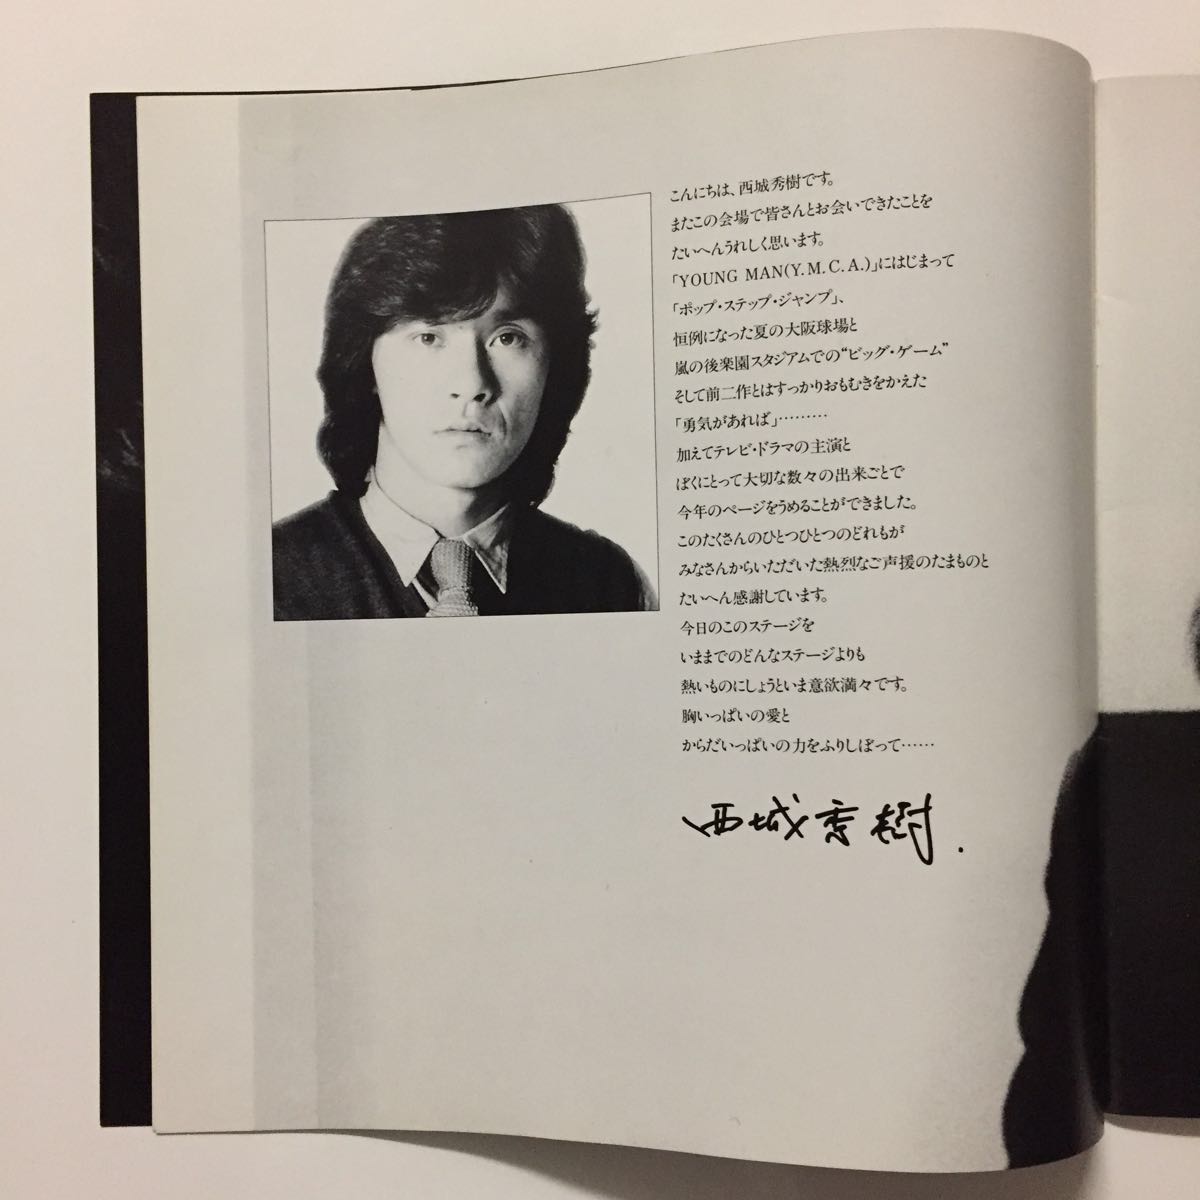 こんにちは、西城秀樹です。
またこの会場で皆さんとお会いできたことを
たいへんうれしく思います。
「YOUNG MAN(Y.M.C.A.)」にはじまって
「ホップ・ステップ・ジャンプ」、
恒例になった夏の大阪球場と
嵐の後楽園スタジアムでの“ビッグ・ゲーム”
そして前二作とはすっかりおもむきをかえた
「勇気があれば」………
加えてテレビ・ドラマの主演と
ぼくにとって大切な数々の出来ごとで
今年のページをうめることができました。
このたくさんのひとつひとつのどれもが
みなさんからいただいた熱烈なご声援のたまものと
たいへん感謝しています。
今日のこのステージを
いままでのどんなステージよりも
熱いものにしょうといま意欲満々です。
胸いっぱいの愛と
からだいっぱいの力をふりしぼって……
西城秀樹.